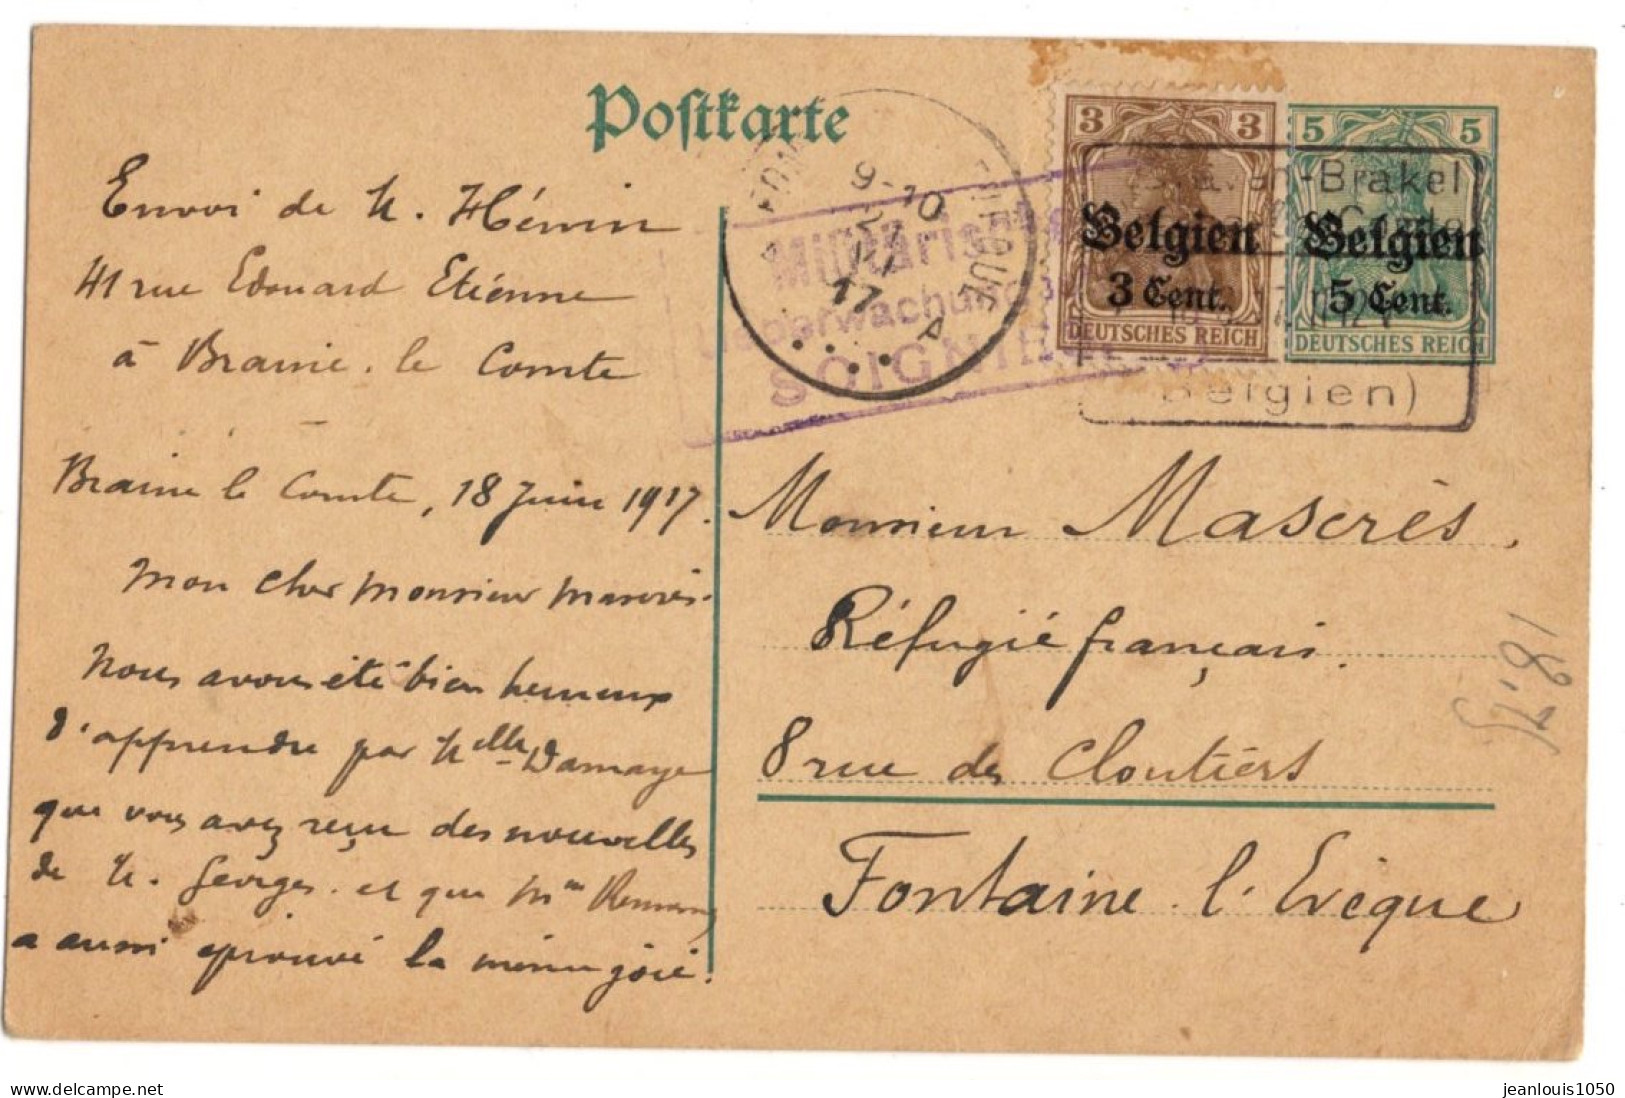 Postkarte
Envoi de M. Hénin
41 rue Edouard Etienne
à Braine-le Comte
Braine le Comte, 18 Juin 1917.
Mon cher Monsieur Mascrès.
Nous avons été bien heureux
d'apprendre par Melle Damage
que vous avez reçu des nouvelles
de M. Georges et que Mme
a aussi éprouvé la même joie.
9-10
17
A
Militärische
Ueberwachungs
SOIGNIES
3 3
Belgien
3 Cent.
DEUTSCHES REICH
5 5
Belgien
5 Cent.
DEUTSCHES REICH
-Brakel
Belgien)
Monsieur Mascrès.
Réfugié français.
8 rue des Cloutiers
Fontaine l'Evêque
jeanlouis1050